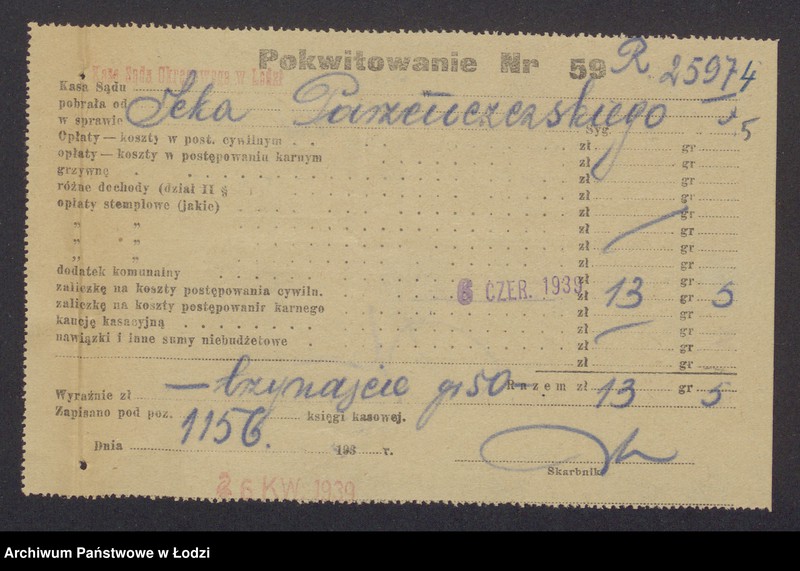 Pokwitowanie Nr 59 R. 25974
Kasa Sądu Okręgowego w Łodzi
Kasa Sądu
pobrała od Icka Parzęczewskiego
w sprawie Syg. 5
Opłaty — koszty w post. cywilnym zł gr
opłaty — koszty w postępowaniu karnym zł gr
grzywnę zł gr
różne dochody (dział II § zł gr
opłaty stemplowe (jakie) zł gr
„ „ zł gr
„ „ zł gr
„ „ zł gr
dodatek komunalny zł gr
zaliczkę na koszty postępowania cywiln. 6 CZER. 1939 zł 13 gr 5
zaliczkę na koszty postępowanir karnego
kaucję kasacyjną zł gr
nawiązki i inne sumy niebudżetowe zł gr
zł gr
Wyraźnie zł — trzynaście gr 50 — Razem zł 13 gr 5
Zapisano pod poz. 1156. księgi kasowej.
Dnia 193 r.
Skarbnik
26 KW. 1939
Archiwum Państwowe w Łodzi